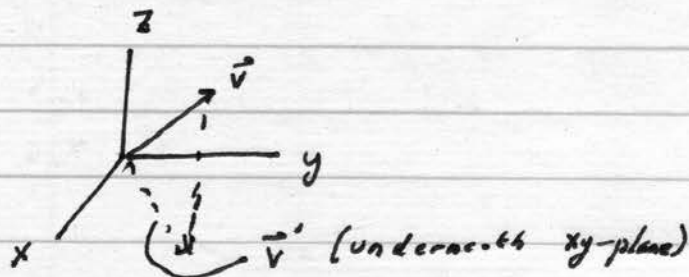 z
v⃗
y
x
v⃗' (underneath xy-plane)